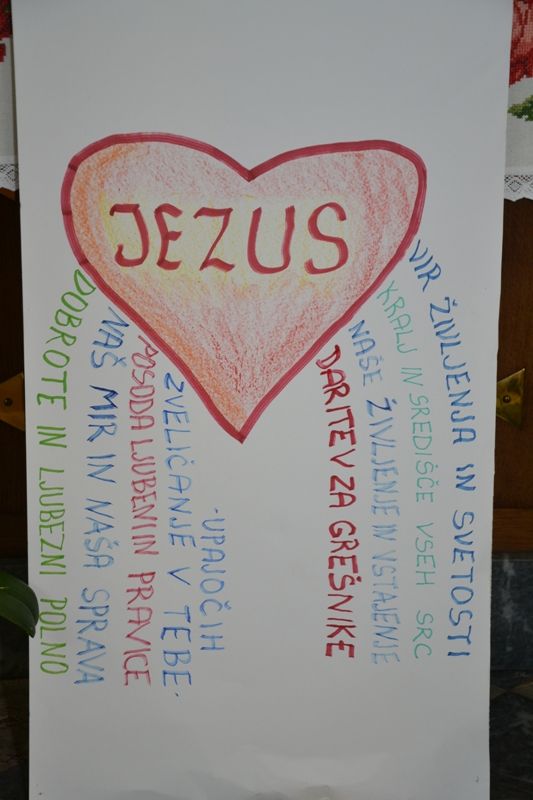 JEZUS
DOBROTE IN LJUBEZNI POLNO
NAŠ MIR IN NAŠA SPRAVA
POSODA LJUBENI IN PRAVICE
ZVELIČANJE V TEBE-
-UPAJOČIH
DARITEV ZA GREŠNIKE
NAŠE ŽIVLJENJE IN VSTAJENJE
KRALJ IN SREDIŠČE VSEH SRC
VIR ŽIVLJENJA IN SVETOSTI